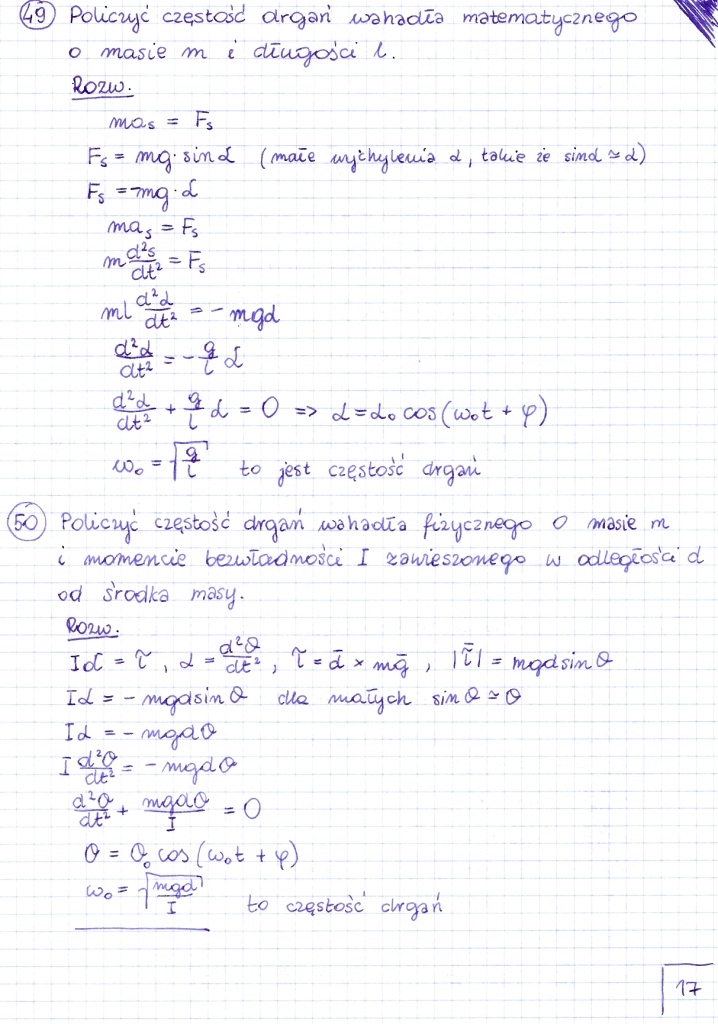 49 Policzyć częstość drgań wahadła matematycznego
o masie m i długości l.
Rozw.
ma_s = F_s
F_s = mg·sinα (małe wychylenia α, takie że sinα ≃ α)
F_s = -mg·α
ma_s = F_s
m d²s/dt² = F_s
ml d²α/dt² = - mgα
d²α/dt² = - g/l α
d²α/dt² + g/l α = 0 => α = α₀ cos(ω₀t + φ)
ω₀ = √(g/l) to jest częstość drgań
50 Policzyć częstość drgań wahadła fizycznego o masie m
i momencie bezwładności I zawieszonego w odległości d
od środka masy.
Rozw.
Iα = τ, α = d²θ/dt², τ = d̄ × mḡ, |τ̄| = mgd sinθ
Iα = - mgd sinθ dla małych sinθ ≃ θ
Iα = - mgdθ
I d²θ/dt² = - mgdθ
d²θ/dt² + mgdθ/I = 0
θ = θ₀ cos(ω₀t + φ)
ω₀ = √(mgd/I) to częstość drgań
17